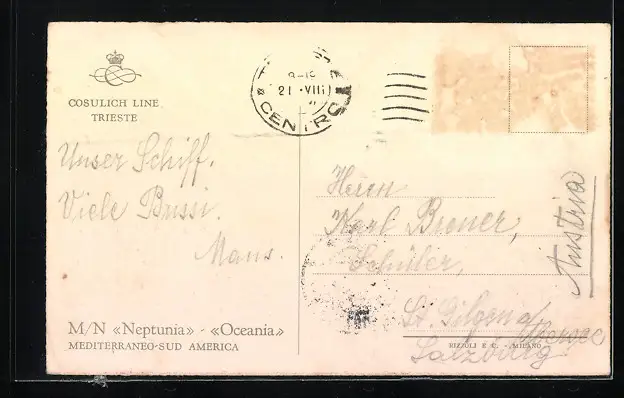 COSULICH LINE
TRIESTE
9-10
21 · VIII
CENTRO
Unser Schiff.
Viele Bussi.
M/N «Neptunia» - «Oceania»
MEDITERRANEO-SUD AMERICA
Herrn
Karl Brener,
Schüler,
St. Gilgen a/
Abersee
Salzburg
Austria
RIZZOLI E C. - MILANO